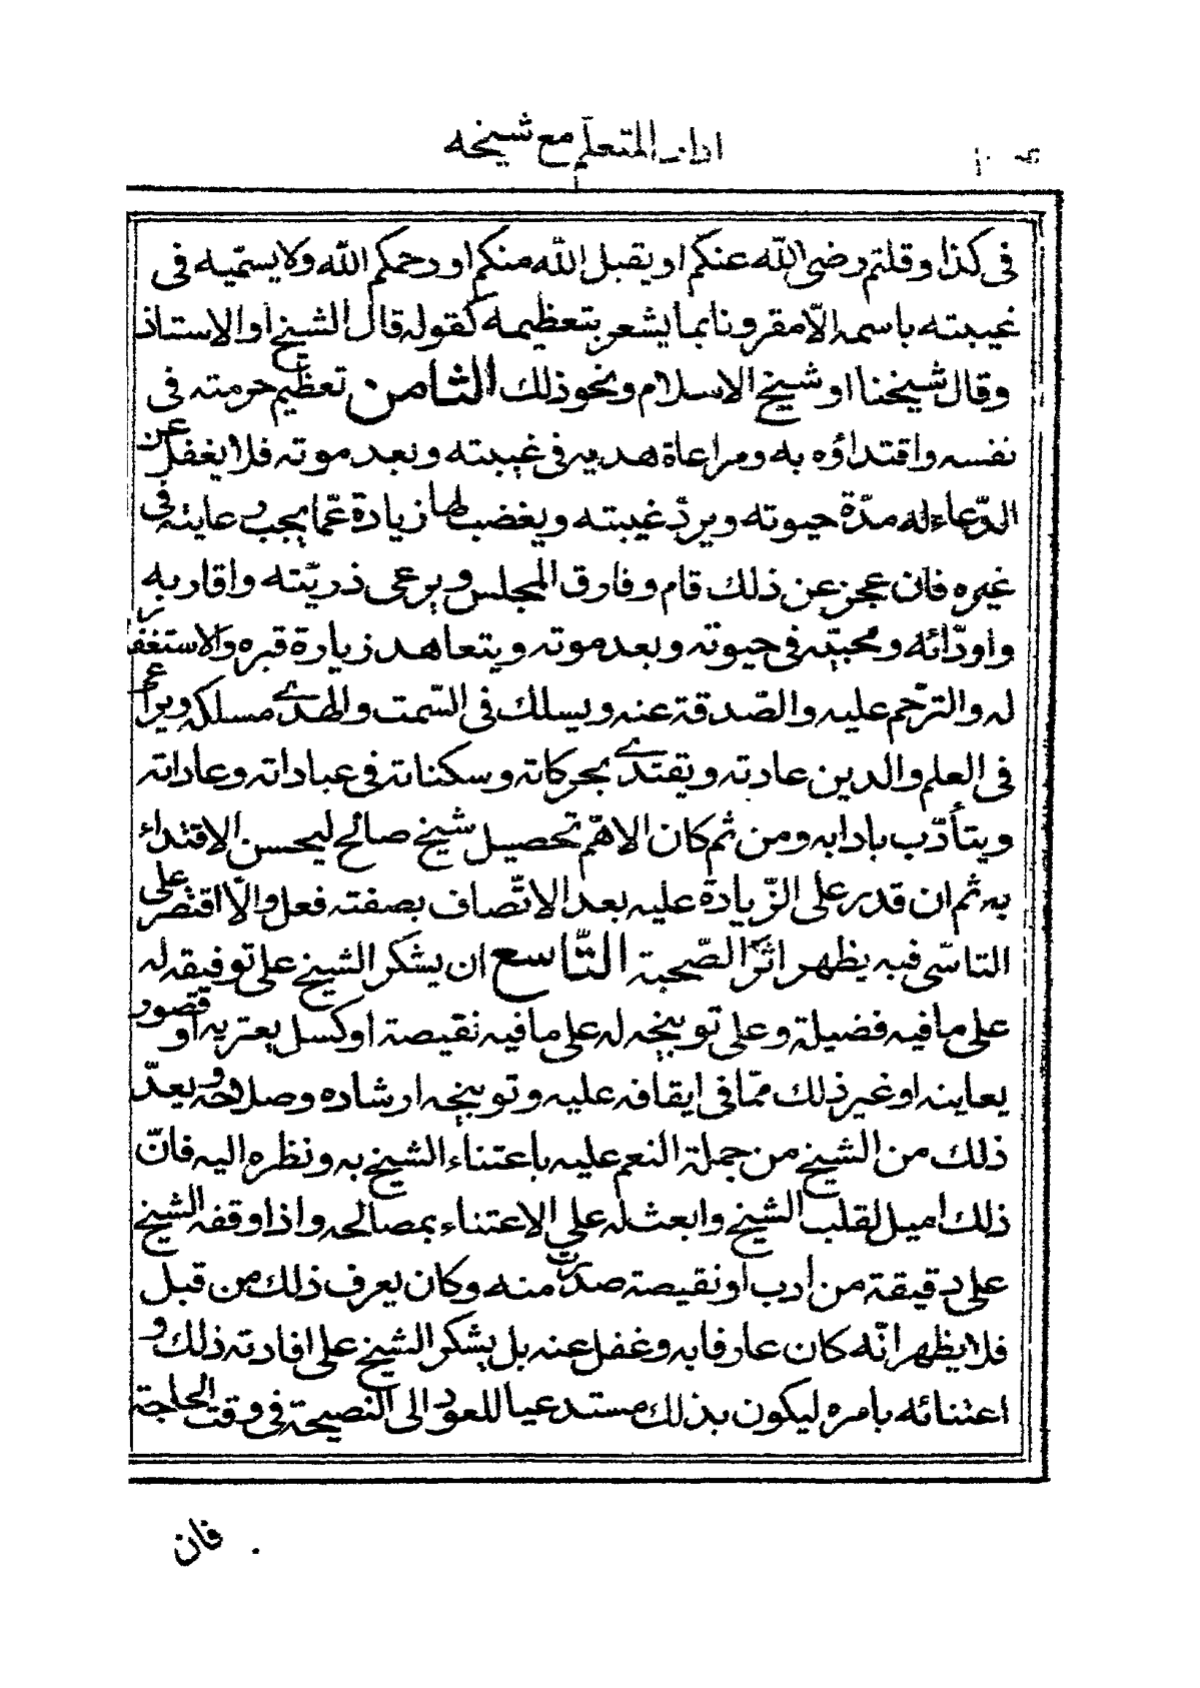 اداب المتعلّم مع شيخه
فى كذا وقلتم رضى اللّه عنكم او يقبل اللّه منكم او رحمكم اللّه ولا يسمّيه فى
غيبته باسمه الّا مقرونا بما يشعر بتعظيمه كقوله قال الشيخ او الاستاذ
وقال شيخنا او شيخ الاسلام ونحو ذلك الثامن تعظيم حرمته فى
نفسه واقتداؤه به ومراعاة هديه فى غيبته وبعد موته فلا يغفل عن
الدّعاء له مدّة حيوته ويردّ غيبته ويغضب لها زيادة عمّا يجب رعايته فى
غيره فان عجز عن ذلك قام وفارق المجلس ويرعى ذريّته واقاربه
واودّائه ومحبّيه فى حيوته وبعد موته ويتعاهد زيارة قبره والاستغفار
له والترحّم عليه والصّدقة عنه ويسلك فى السّمت والهدى مسلكه ويراعى
فى العلم والدين عادته ويقتدى بحركاته وسكناته فى عباداته وعاداته
ويتأدّب بادابه ومن ثم كان الاهمّ تحصيل شيخ صالح ليحسن الاقتداء
به ثم ان قدر على الزّيادة عليه بعد الاتّصاف بصفته فعل والّا اقتصر على
التاسّى فبه يظهر اثر الصّحبة التّاسع ان يشكر الشيخ على توفيقه له
على ما فيه فضيلة وعلى توبيخه له على ما فيه نقيصة او كسل يعتريه او قصور
يعاينه او غير ذلك ممّا فى ايقافه عليه وتوبيخه ارشاده وصلاحه ويعدّ
ذلك من الشيخ من جملة النعم عليه باعتناء الشيخ به ونظره اليه فانّ
ذلك اميل لقلب الشيخ وابعث له على الاعتناء بمصالحه واذا وقفه الشيخ
على دقيقة من ادب او نقيصة صدرت منه وكان يعرف ذلك من قبل
فلا يظهر انّه كان عارفا به وغفل عنه بل يشكر الشيخ على افادته ذلك و
اعتنائه بامره ليكون بذلك مستدعيا للعود الى النصيحة فى وقت الحاجة
فان